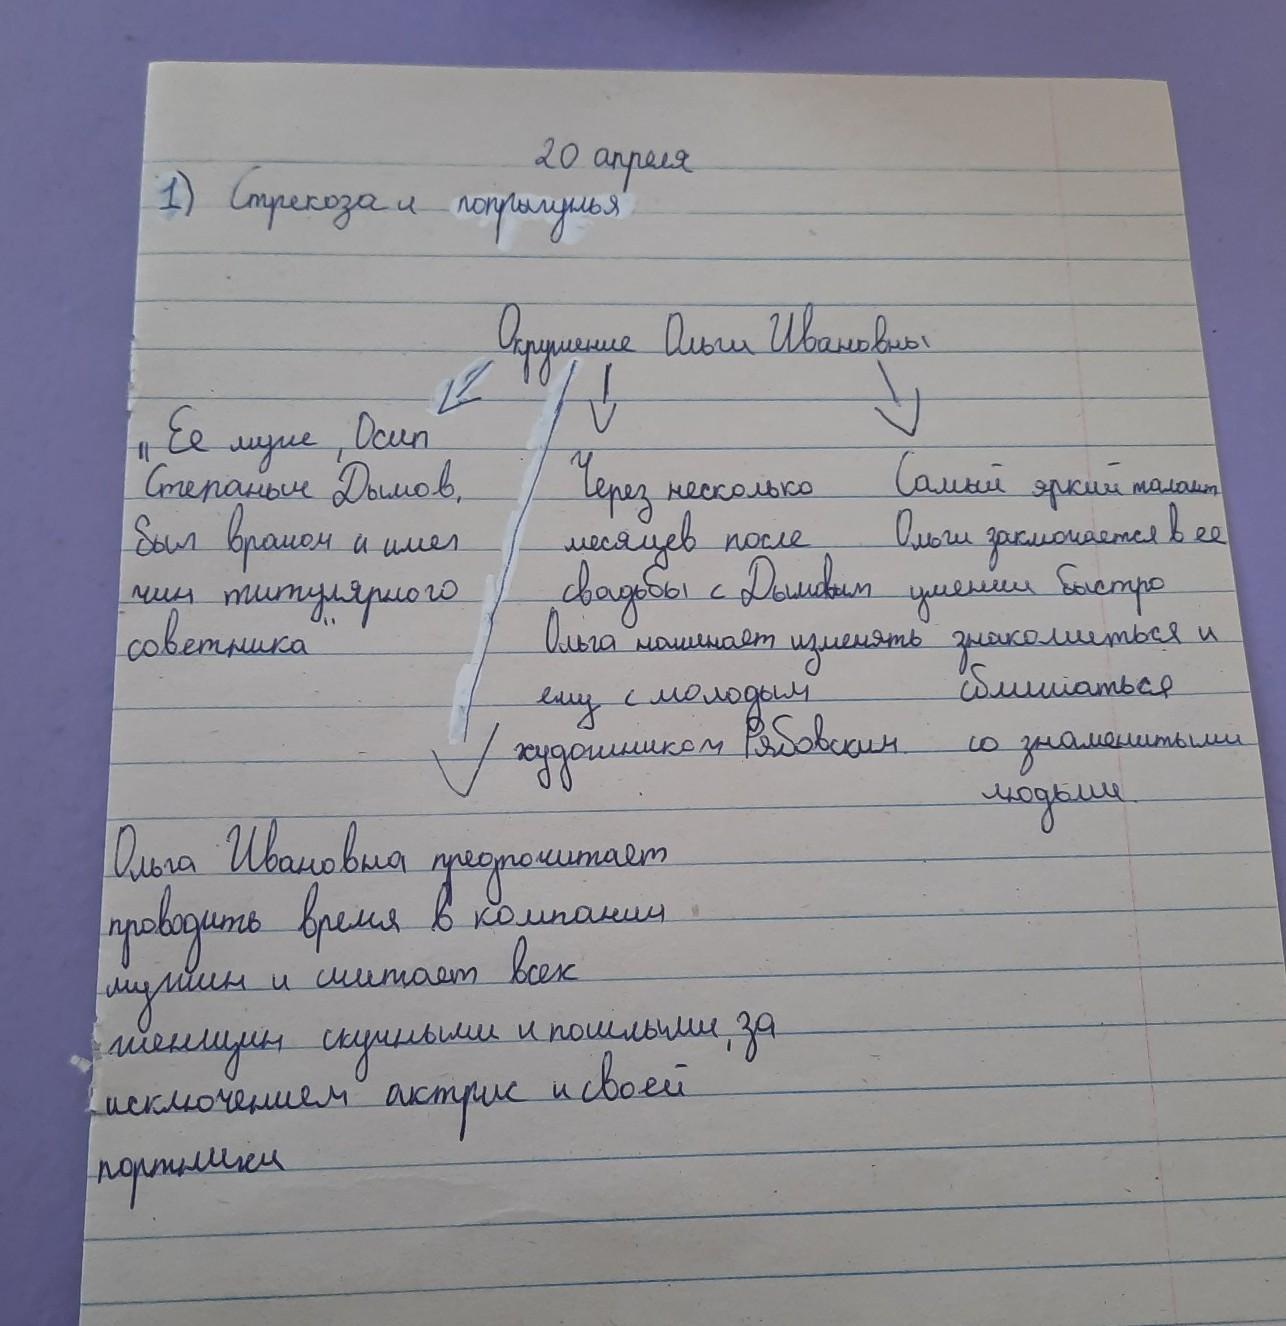 20 апреля
1) Стрекоза и попрыгунья
Окружение Ольги Ивановны
„Ее муж, Осип
Степаныч Дымов,
был врачом и имел
чин титулярного
советника"
Через несколько
месяцев после
свадьбы с Дымовым
Ольга начинает изменять
ему с молодым
художником Рябовским.
Самый яркий талант
Ольги заключается в ее
умении быстро
знакомиться и
сближаться
со знаменитыми
людьми.
Ольга Ивановна предпочитает
проводить время в компании
мужчин и считает всех
женщин скучными и пошлыми, за
исключением актрис и своей
портнихи